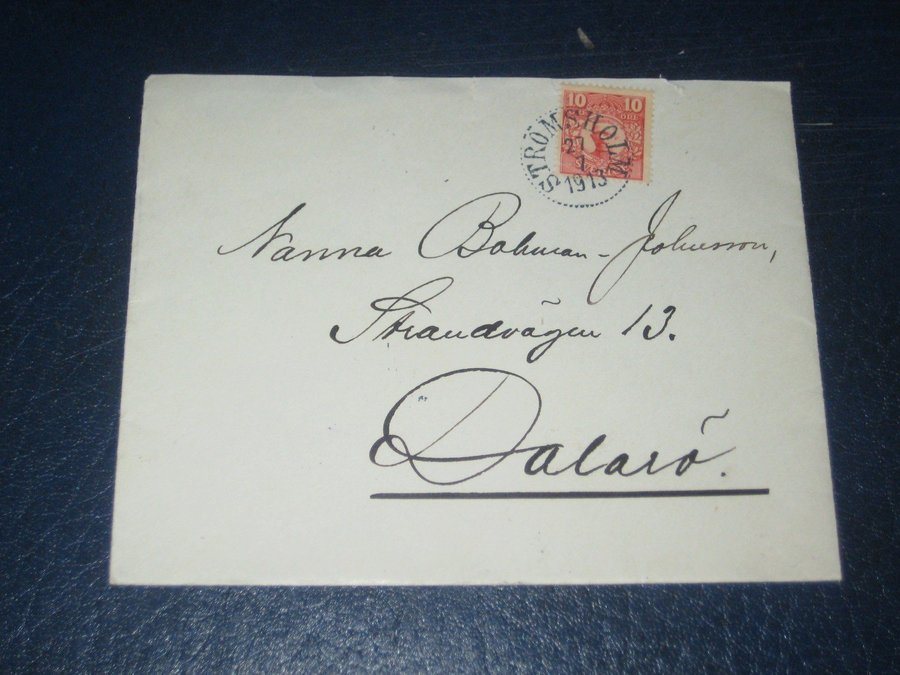 10 10
ÖRE
STRÖMSHOLM
27
1
1913
Nanna Bohman-Johnsson,
Strandvägen 13.
Dalarö.